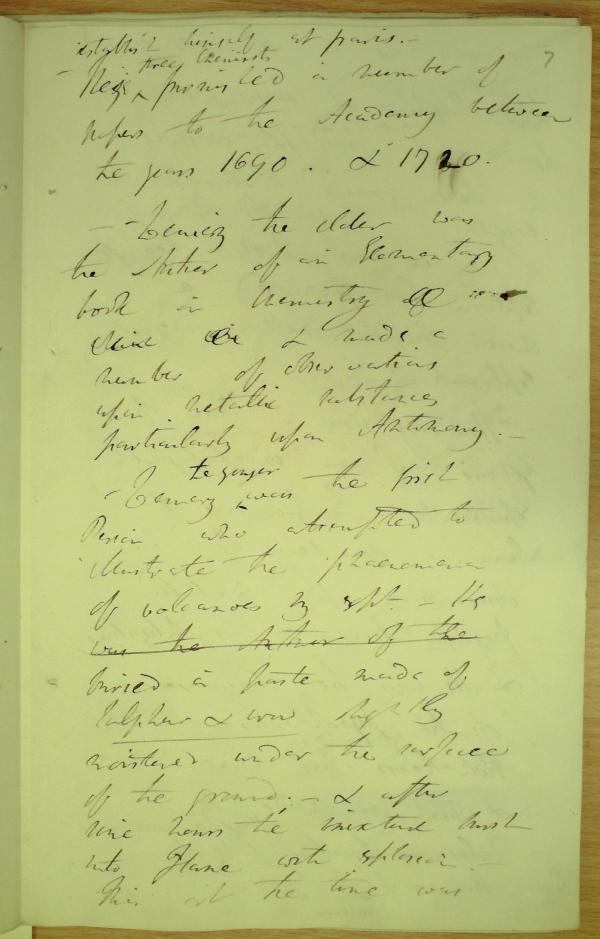 establish himself at paris. -
7
three Chemists
- These ^ furnished a number of
papers to the Academy between
the years 1690 . & 1720.
- - Lemery the elder was
the Author of an Elementary
book on Chemistry
& made a
number of observations
upon metallic substances
particularly upon Antimony. -
the younger
- Lemery ^ was the first
Person who attempted to
illustrate the phaenomena
of volcanoes by expt - He
was the Author of the
buried a paste made of
Sulphur & iron slightly
moistened under the surface
of the ground; - & after
nine hours the mixture burst
into flame with explosion. -
This at the time was